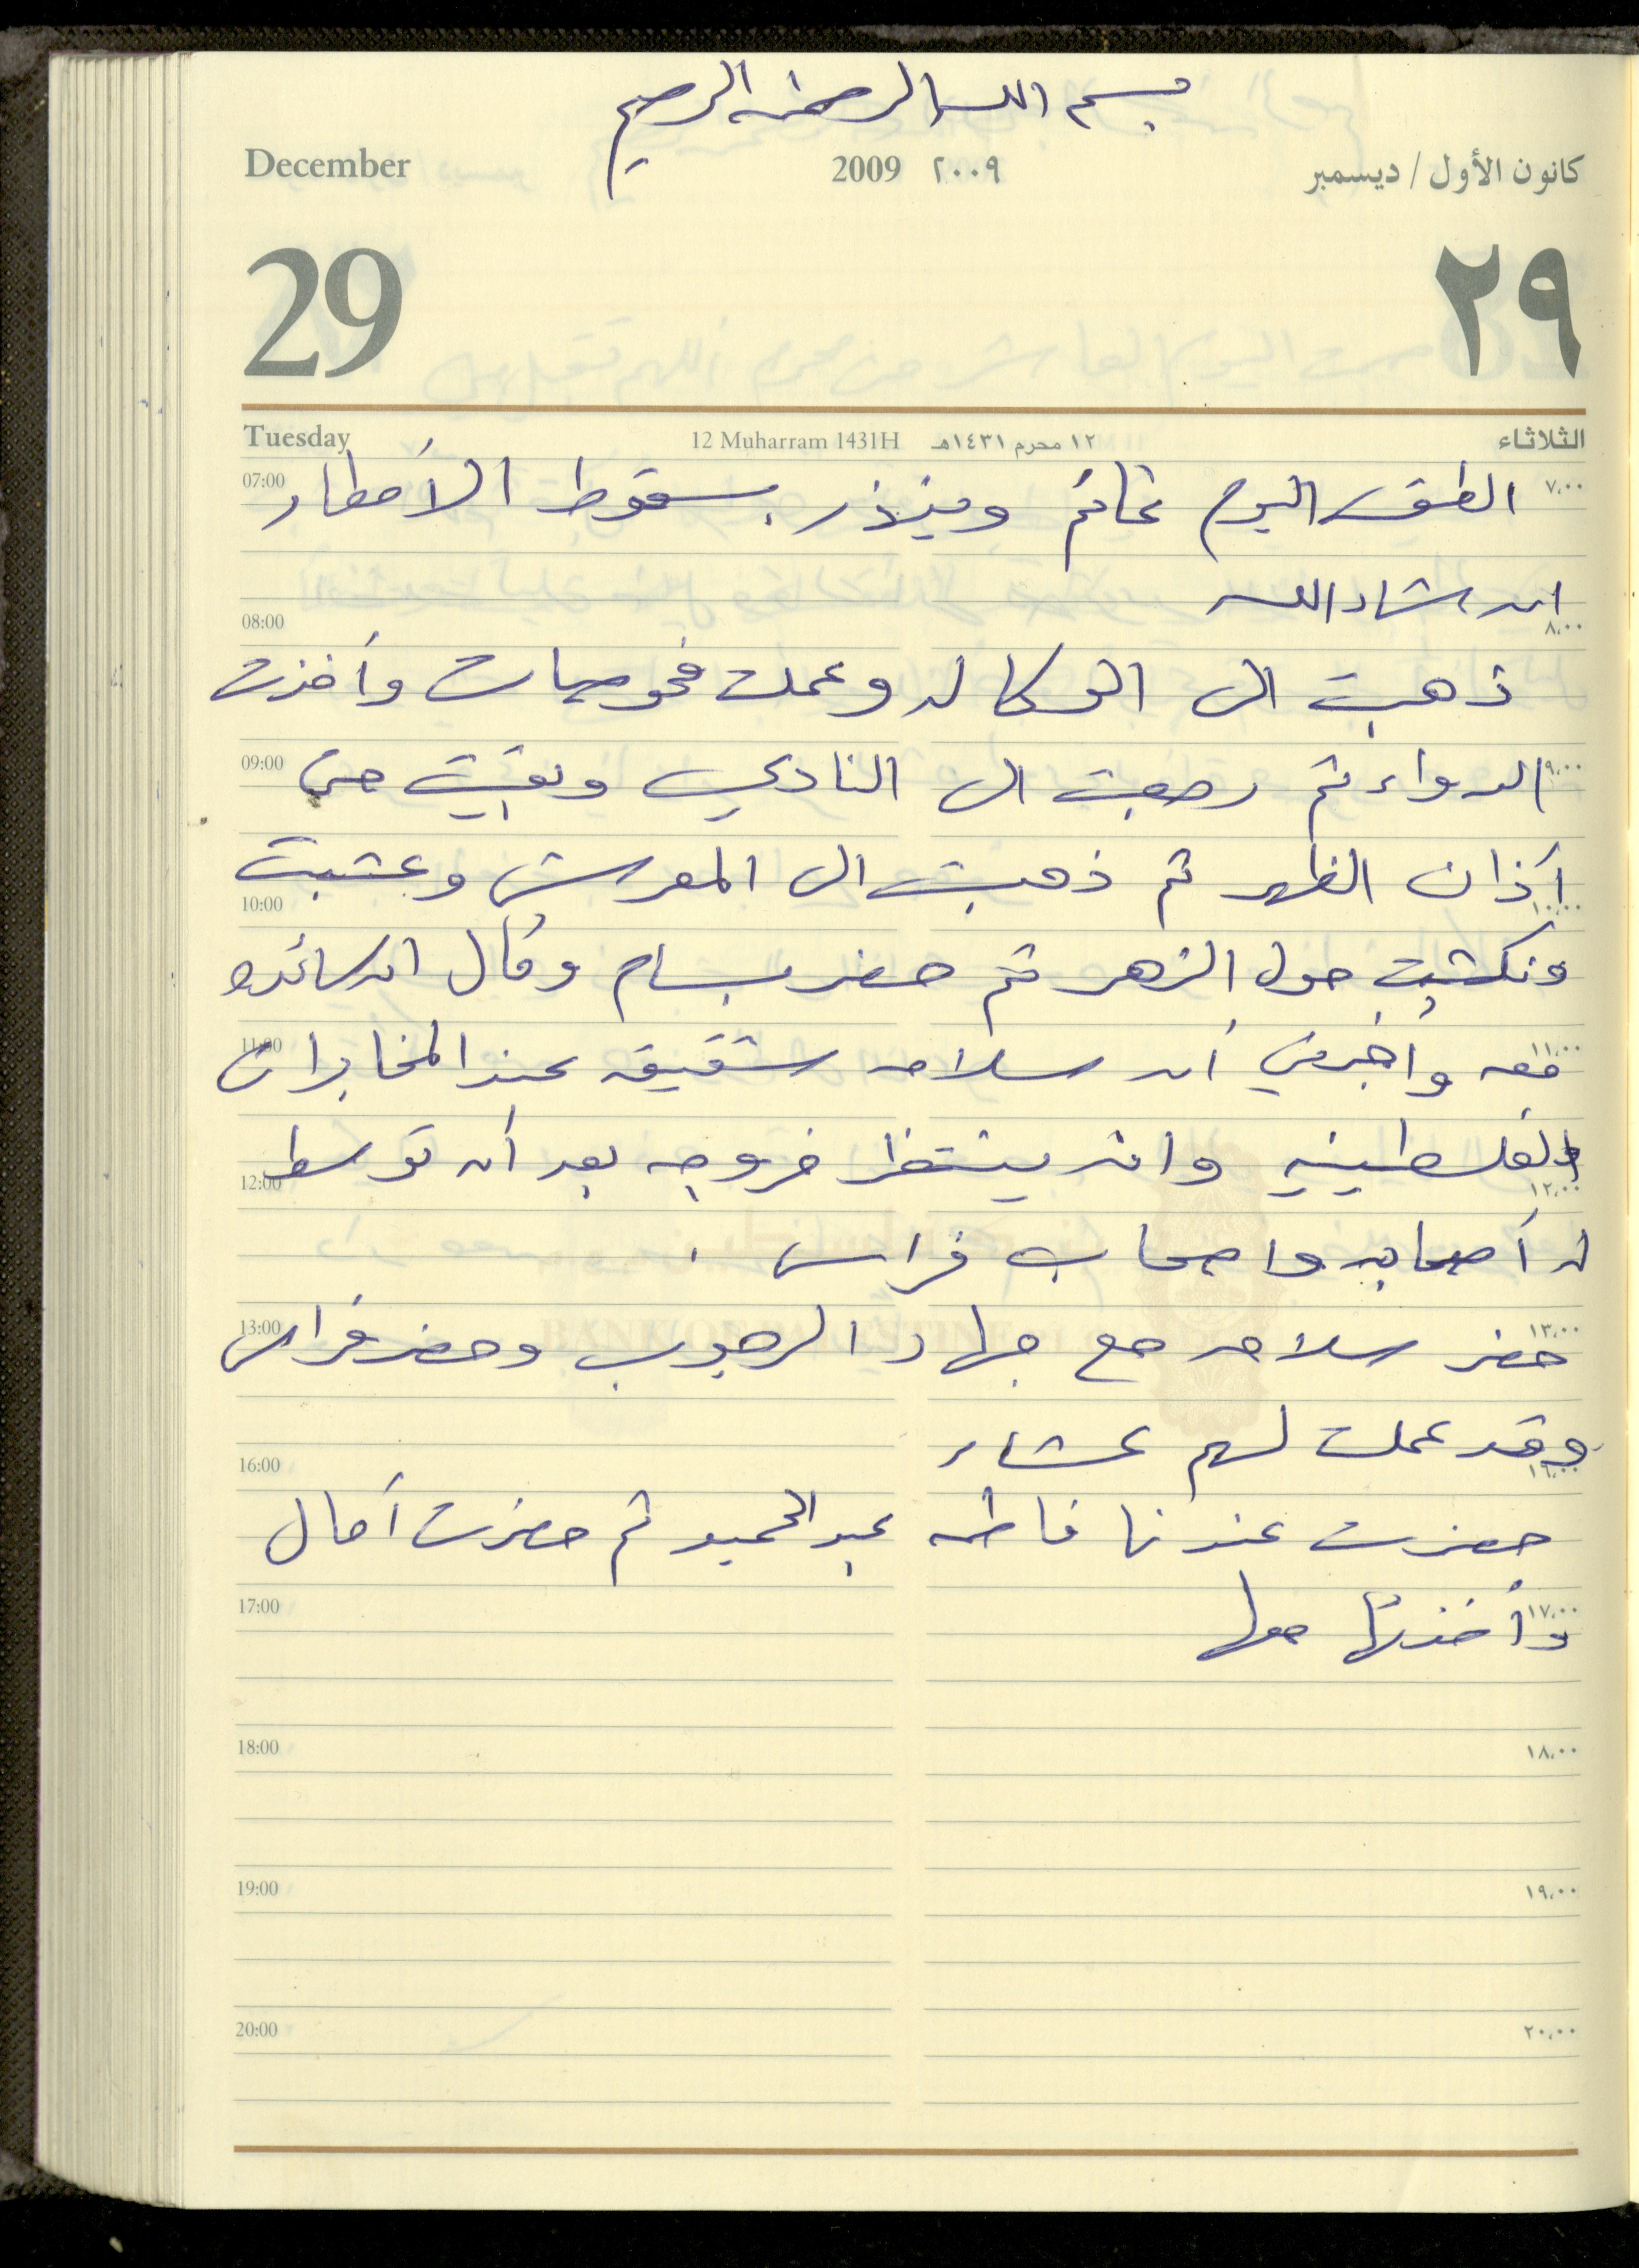 بسم الله الرحمن الرحيم
December 2009 ٢٠٠٩ كانون الأول / ديسمبر
29 ٢٩
Tuesday 12 Muharram 1431H ١٢ محرم ١٤٣١هـ الثلاثاء
07:00 الطقس اليوم غائم وينذر بسقوط الأمطار ٧,٠٠
ان شاء الله
08:00 ٨,٠٠
ذهبت الى الوكاله وعملت فحوصات وأخذت
09:00 الدواء ثم رجعت الى النادي وبقيت حتى ٩,٠٠
أذان الظهر ثم ذهبت الى المعرش وعشبت
10:00 ١٠,٠٠
ونكشت حول الزهر ثم حضر بسام وقال ان سائده
11:00 معه وأخبرني أن سلامه شقيقه عند المخابرات ١١,٠٠
الفلسطينيه وانه ينتظر خروجه بعد أن توسط
12:00 ١٢,٠٠
له أصحابه واصحاب فراس .
13:00 حضر سلامه مع جهاد الرجوب وحضر فراس ١٣,٠٠
وقد عملت لهم عشاء
16:00 ١٦,٠٠
حضرت عندنا فاطمه عبد الحميد ثم حضرت أمال
17:00 وأخذتها معها ١٧,٠٠
18:00 ١٨,٠٠
19:00 ١٩,٠٠
20:00 ٢٠,٠٠